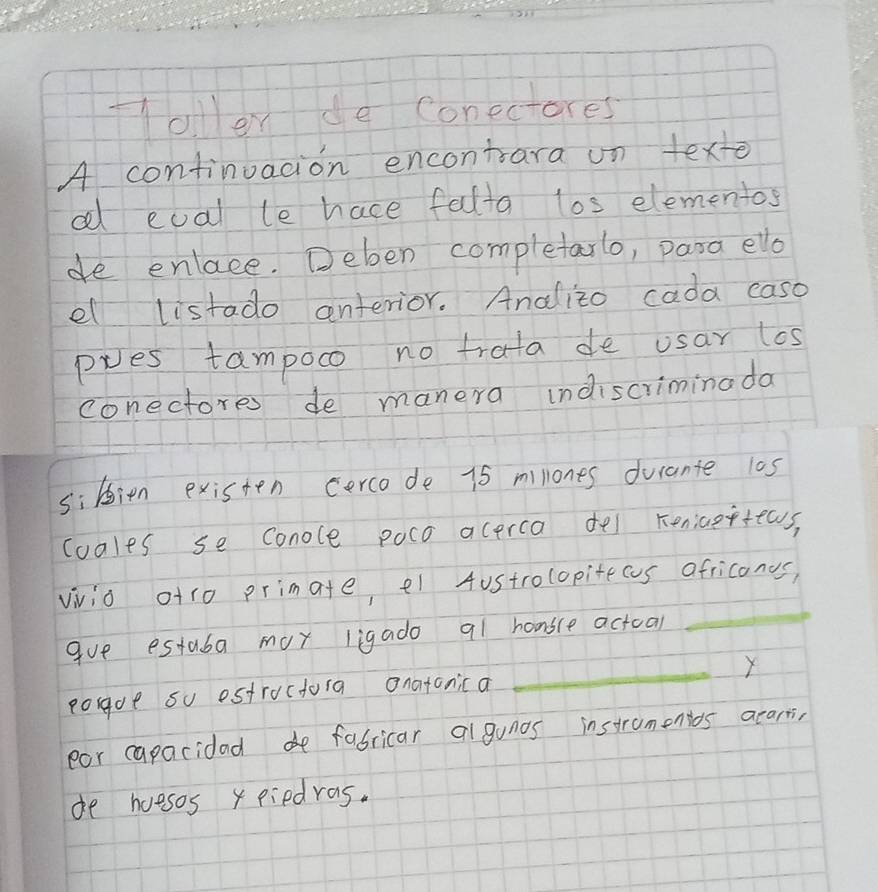 Taller de Conectores
A continuación encontrara un texto
al cual le hace falta los elementos
de enlace. Deben completarlo, para ello
el listado anterior. Analizo cada caso
pues tampoco no trata de usar los
conectores de manera indiscriminada
si bien existen cerco de 15 millones durante los
cuales se conoce poco acerca del
vivio otro primate, el Austrolopitecus africanus,
que estaba muy ligado al hombre actual
porque su estructura anatonica y
por capacidad de fabricar algunos instrumentos apartir
de huesos y piedras.